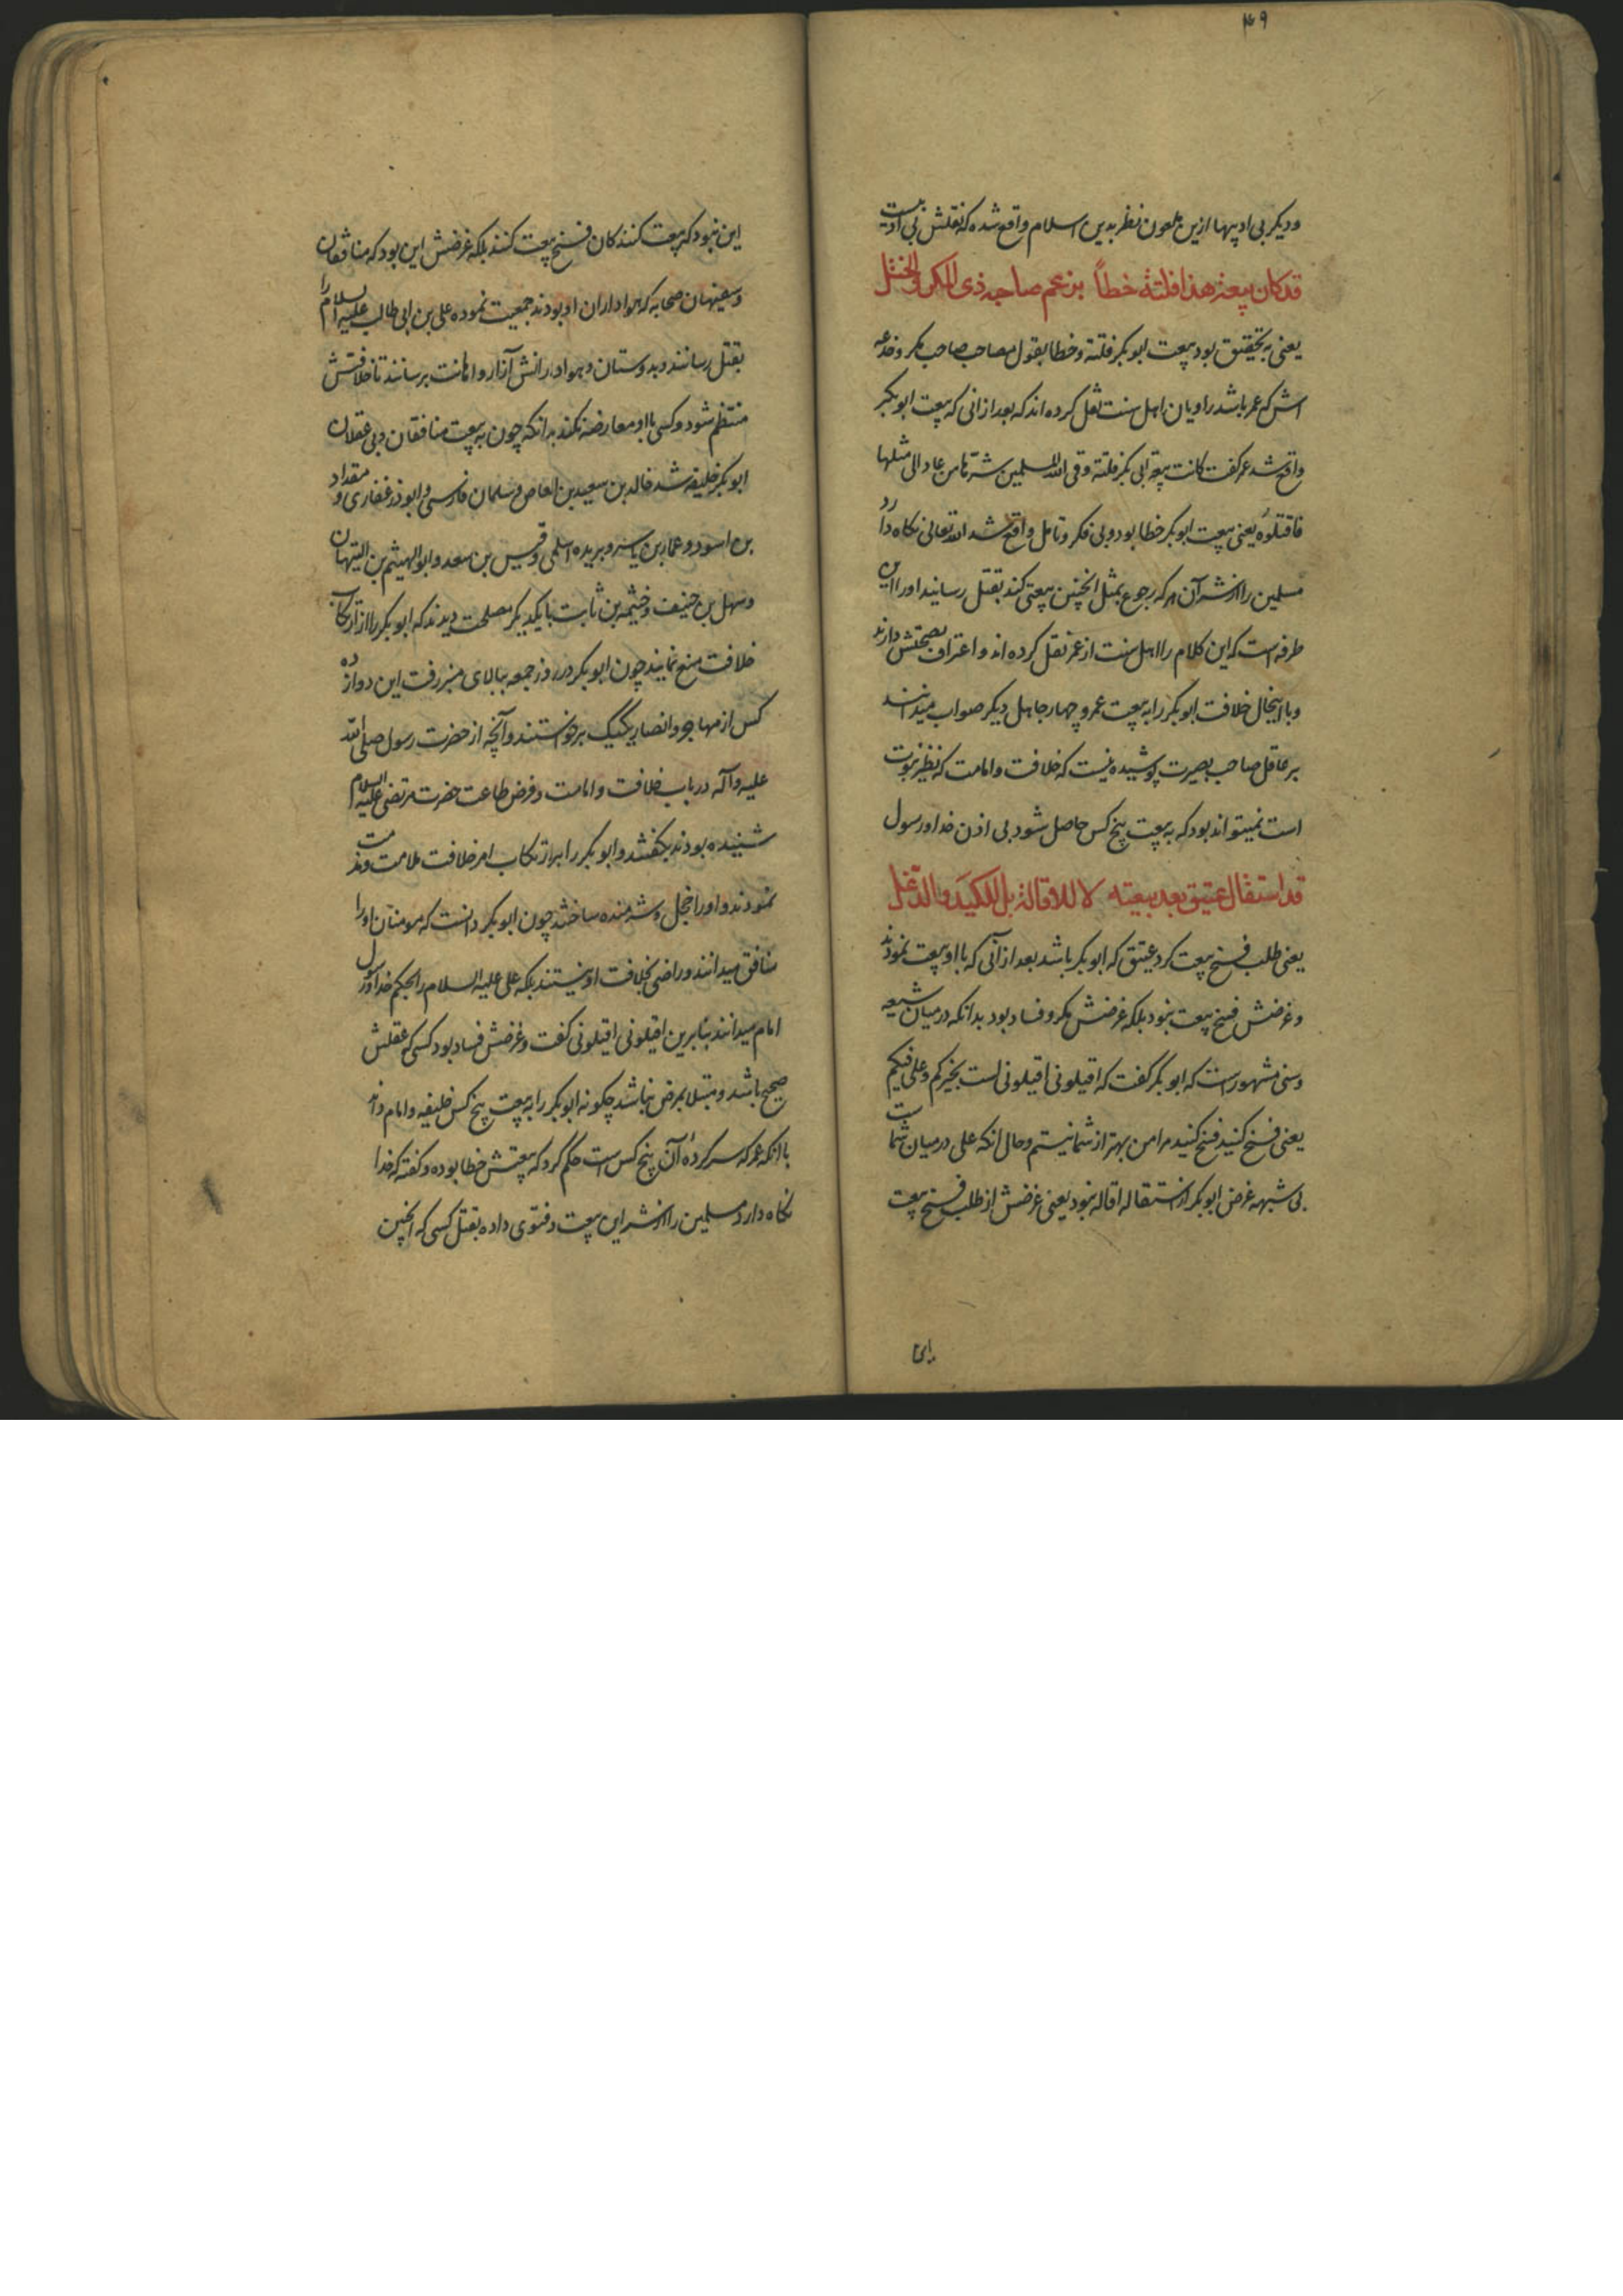 ۴۹
و دیگر بی ادبیها ازین ملعون نظر بدین اسلام واقع شده که نقلش بی ادبیست
قد کان بیعة هذا فلتة خطأ بزعم صاحبه ذی المکر والختل
یعنی به تحقیق بود بیعت ابوبکر فلتة و خطا بقول مصاحب صاحب مکر و خدعه
اش که عمر باشد راویان اهل سنت نقل کرده اند که بعد از انی که بیعت ابوبکر
واقع شد عمر گفت کانت بیعة ابی بکر فلتة وقی الله المسلمین شرّها من عاد الی مثلها
فاقتلوه یعنی بیعت ابوبکر خطا بود و بی فکر و تامل واقع شد الله تعالی نکاه دارد
مسلمین را از شر آن هر که رجوع بمثل انچنین بیعتی کند بقتل رسانید او را این
طرفه است که این کلام را اهل سنت از عمر نقل کرده اند و اعتراف بصحتش دارند
و با اینحال خلافت ابوبکر را به بیعت عمر و چهار جاهل دیکر صواب میدانند
بر عاقل صاحب بصیرت پوشیده نیست که خلافت و امامت که نظیر نبوت
است نمیتواند بود که به بیعت پنج کس حاصل شود بی اذن خدا و رسول
قد استقال عتیق بعد بیعته لا للاقالة بل للکید والدغل
یعنی طلب فسخ بیعت کرد عتیق که ابوبکر باشد بعد از آنی که با او بیعت نمودند
و غرضش فسخ بیعت نبود بلکه غرضش مکر و فساد بود بدانکه در میان شیعه
و سنی مشهور است که ابوبکر گفت که اقیلونی اقیلونی لست بخیرکم و علی فیکم
یعنی فسخ کنید فسخ کنید مرا من بهتر از شما نیستم و حال انکه علی در میان شماست
بی شبهه غرض ابوبکر از استقاله اقاله نبود یعنی غرضش از طلب فسخ بیعت
این نبود که بیعت کنندکان فسخ بیعت کنند بلکه غرضش این بود که منافقان
و سفیهان صحابه که هواداران او بودند جمعیت نموده علی بن ابی طالب علیه السلام را
بقتل رسانند و بدوستان و هوادارانش آزار و اهانت برسانند تا خلافتش
منتظم شود و کسی با او معارضه نکند بدانکه چون به بیعت منافقان و بی عقلان
ابوبکر خلیفه شد خالد بن سعید بن العاص و سلمان فارسی و ابوذر غفاری و مقداد
بن اسود و عمار بن یاسر و بریده اسلمی و قیس بن سعد و ابو الهیثم بن التیهان
و سهل بن حنیف و خثیمه بن ثابت با یکدیکر مصلحت دیدند که ابوبکر را از ارتکاب
خلافت منع نمایند چون ابوبکر در روز جمعه ببالای منبر رفت این دوازده
کس از مهاجر و انصار یکیک برخواستند و آنچه از حضرت رسول صلی الله
علیه و آله در باب خلافت و امامت و فرض طاعت حضرت مرتضی علیه السلام
شنیده بودند بکفتند و ابوبکر را بر ارتکاب امر خلافت ملامت و مذمت
نمودند و او را خجل و شرمنده ساختند چون ابوبکر دانست که مومنان او را
منافق میدانند و راضی بخلافت او نیستند بلکه علی علیه السلام را بحکم خدا و رسول
امام میدانند بنابرین اقیلونی اقیلونی کفت و غرضش فساد بود کسی که عقلش
صحیح باشد و مبتلا بمرض نباشد چکونه ابوبکر را به بیعت پنج کس خلیفه و امام داند
با انکه عمر که سرکرده آن پنج کس است حکم کرد که بیعتش خطا بوده و کفته که خدا
نکاه دارد مسلمین را از شر این بیعت و فتوی داده بقتل کسی که انچنین